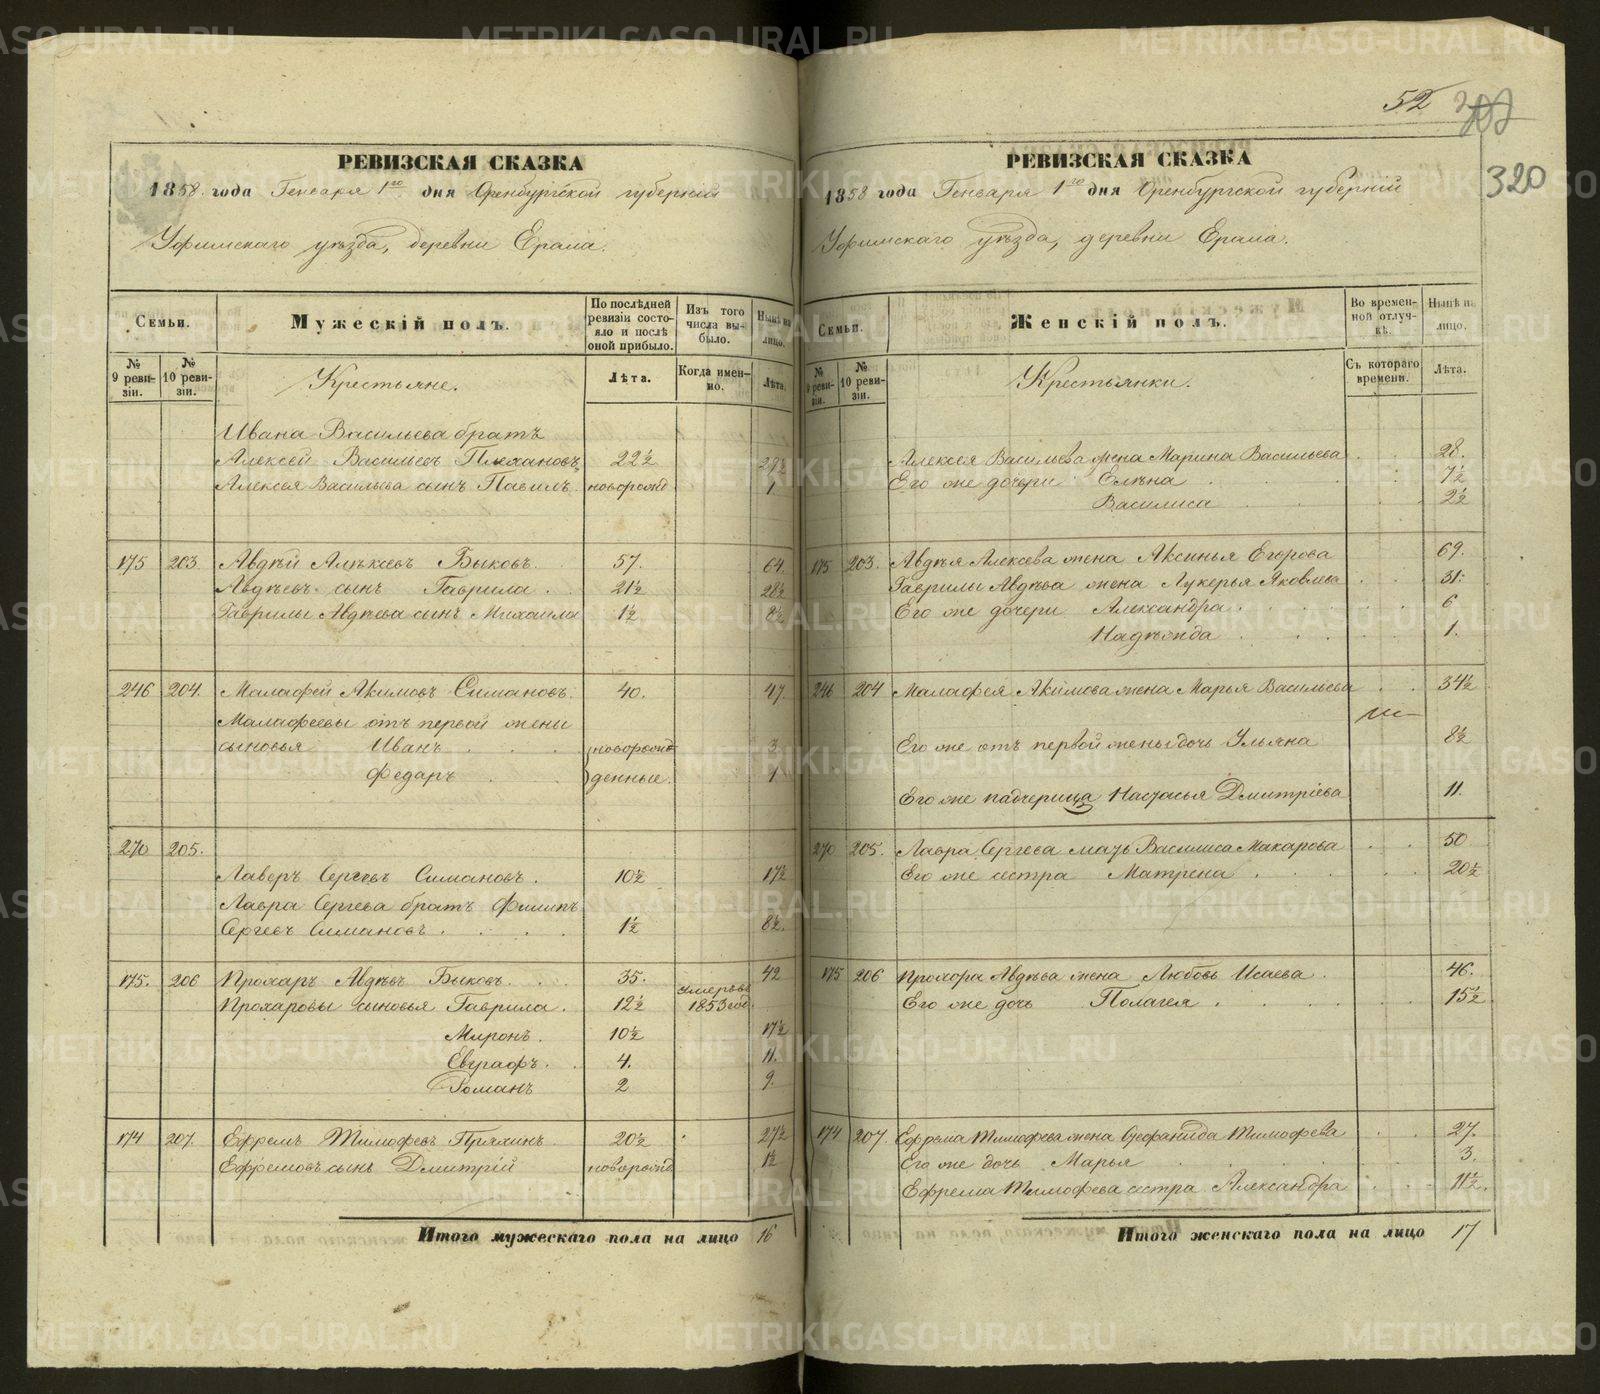 РЕВИЗСКАЯ СКАЗКА
1858 года Генваря 1го дня Оренбургской губерніи
Уфимскаго уѣзда, деревни Ерала.
Семьи.
Мужескій полъ.
По послѣдней ревизіи состояло и послѣ оной прибыло.
Изъ того числа выбыло.
Нынѣ на лицо.
№ 9 ревизіи.
№ 10 ревизіи.
Крестьяне.
Лѣта.
Когда именно.
Лѣта.
Ивана Васильева братъ
Алексей Васильевъ Плехановъ 22½ 29½
Алексея Васильева сынъ Павилъ новорожд 1
175 203 Авдѣй Алексеевъ Быковъ. 57. 64.
Авдѣевъ сынъ Гаврила 21½ 28½
Гаврилы Авдѣева сынъ Михаила 1½ 8½
246 204. Малафей Акимовъ Симановъ. 40. 47.
Малафеевы отъ первой жены
сыновья Иванъ новорож 3
Федаръ денные. 1
270 205.
Лаверъ Сергеевъ Симановъ. 10½ 17½
Лавра Сергева братъ Филипъ
Сергевъ Симановъ. 1½ 8½.
175. 206 Прохаръ Авдѣевъ Быковъ. 35. 42
Прохаровы сыновья Гаврила. 12½ умеръ въ 1853 год.
Миронъ. 10½ 17½
Евграфъ. 4. 11.
Романъ 2 9.
174 207. Ефремъ Тимофевъ Пряхинъ. 20½ 27½
Ефремовъ сынъ Дмитрій новорожд 1½
Итого мужескаго пола на лицо 16
52
320
РЕВИЗСКАЯ СКАЗКА
1858 года Генваря 1го дня Оренбургской губерніи
Уфимскаго уѣзда, деревни Ерала.
Семьи.
Женскій полъ.
Во временной отлучкѣ.
Нынѣ на лицо.
№ 9 ревизіи.
№ 10 ревизіи.
Крестьянки.
Съ котораго времени.
Лѣта.
Алексея Васильева жена Марина Васильева 28.
Его же дочери Елѣна 7½
Василиса 2½
175 203. Авдѣя Алексева жена Аксинья Егорова 69.
Гаврилы Авдѣева жена Лукерья Яковлева 31.
Его же дочери Александра 6
Надѣжда 1.
246 204 Малафея Акимова жена Марья Васильева 34½
Его же отъ первой жены дочь Ульяна 8½
Его же падчерица Настасья Дмитріева 11.
270 205. Лавра Сергева мать Василиса Макарова 50
Его же сестра Матрена 20½
175 206 Прохора Авдѣева жена Любовь Исаева. 46.
Его же дочь Полагея 15½
174 207 Ефрема Тимофева жена Стефанида Тимофева 27.
Его же дочь Марья 3.
Ефрема Тимофева сестра Александра 11½.
Итого женскаго пола на лицо 17
METRIKI.GASO-URAL.RU